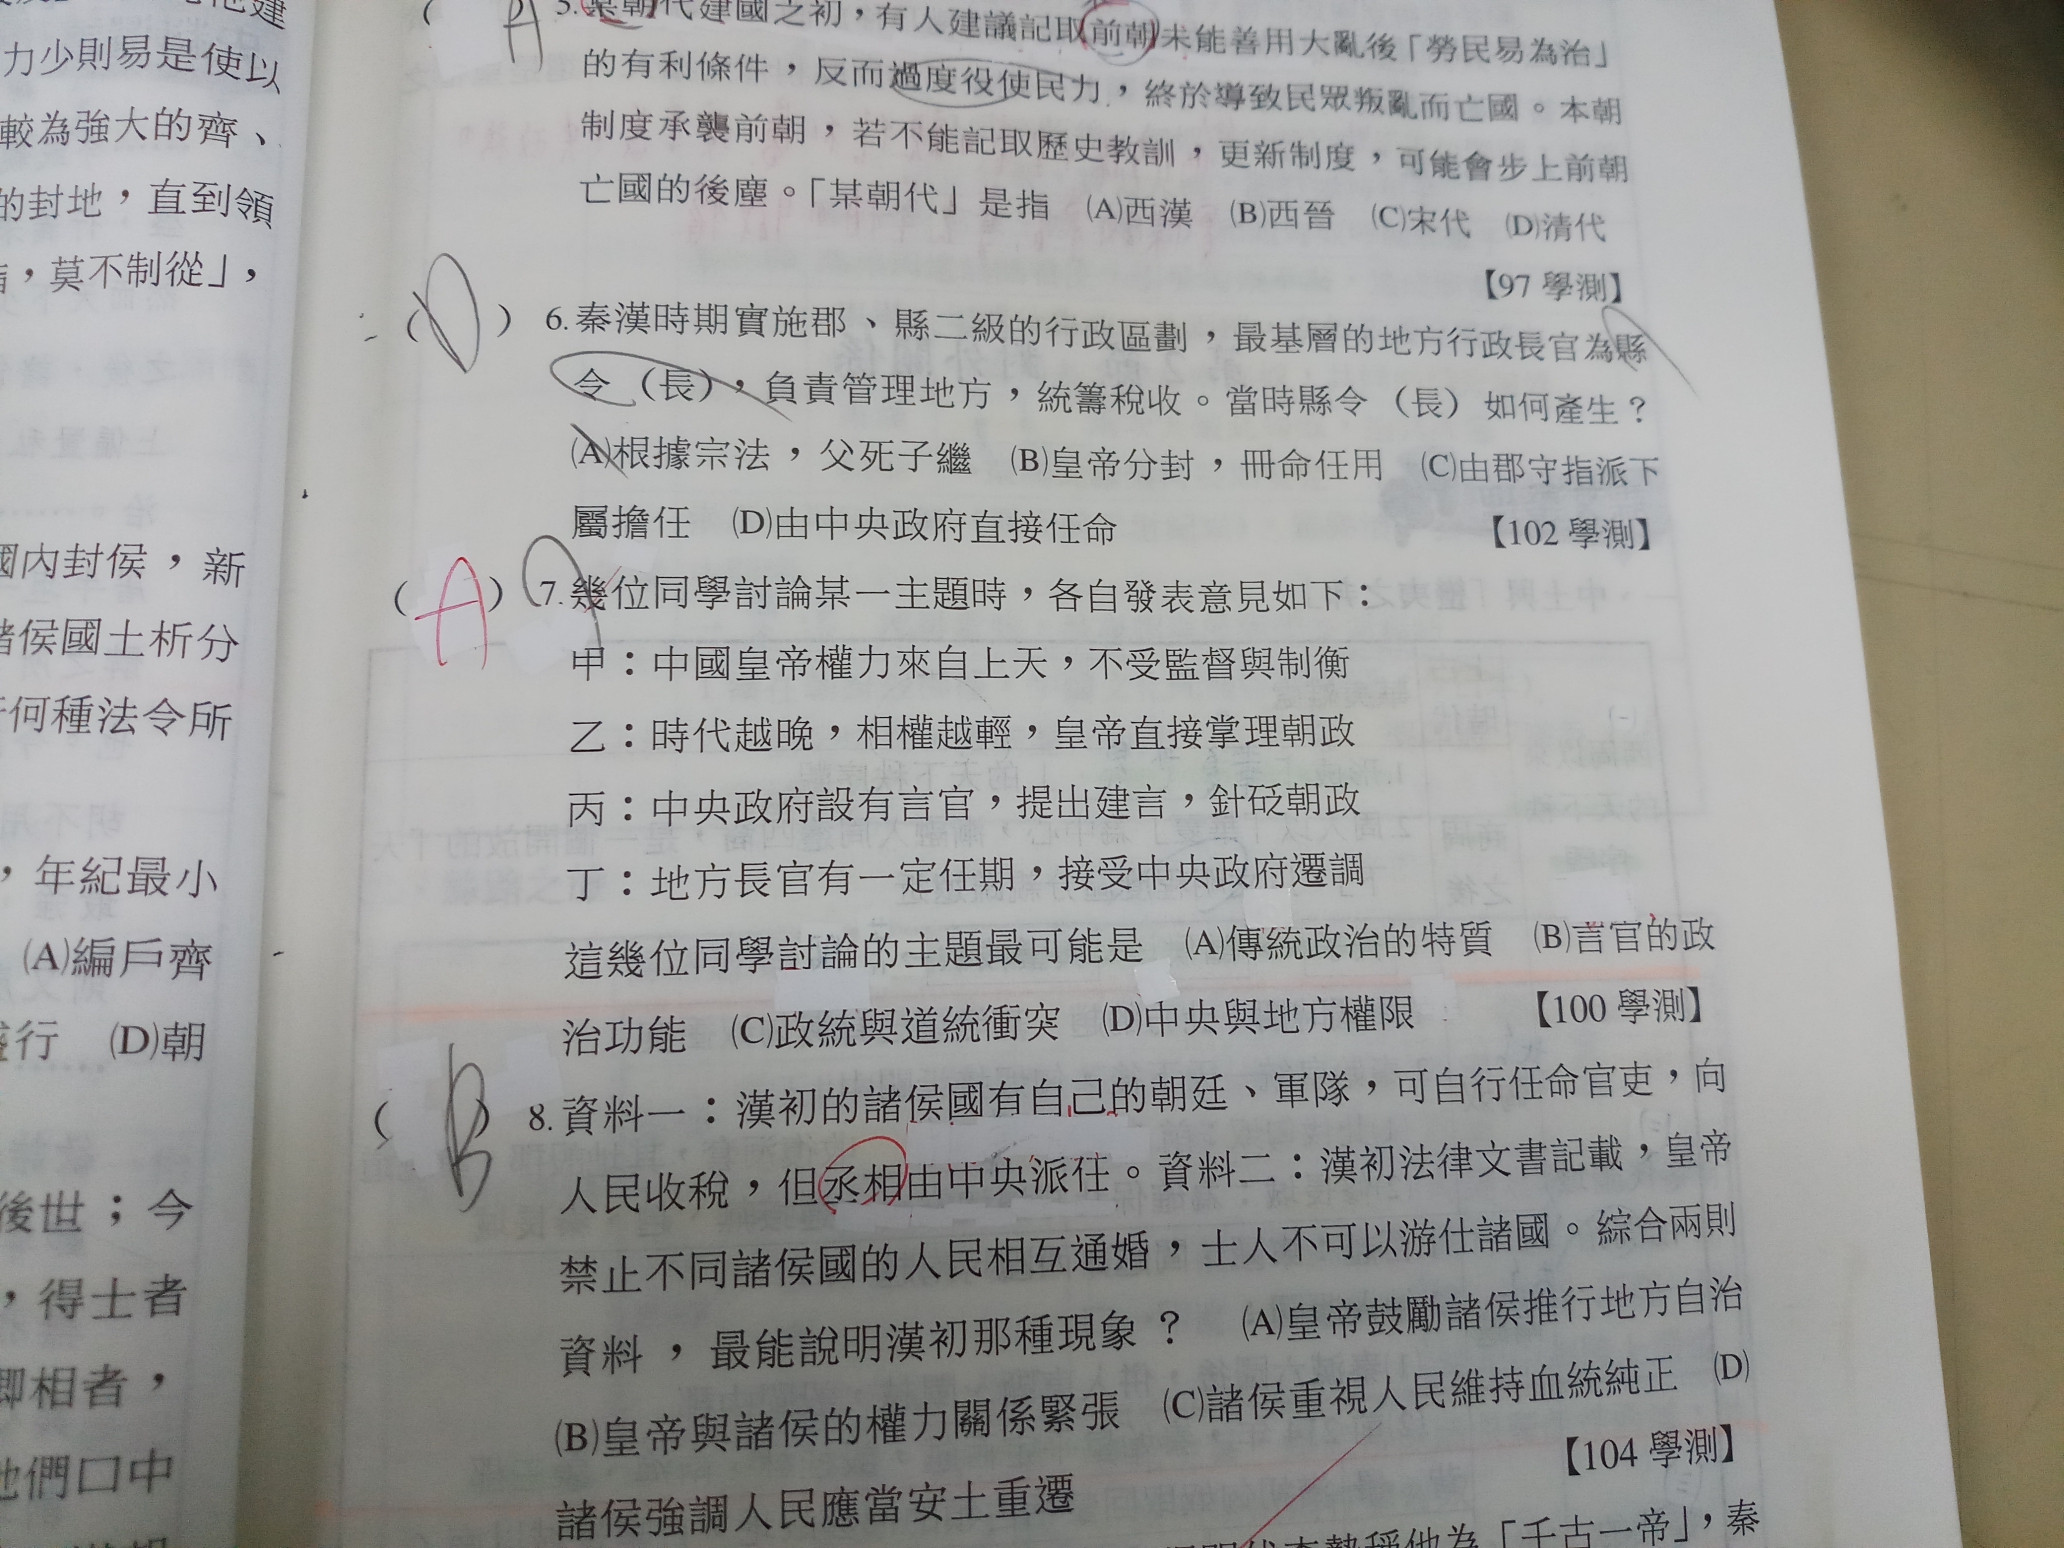 力少則易是使以
較為強大的齊、
的封地，直到領
，莫不制從」，
國內封侯，新
諸侯國土析分
何種法令所
，年紀最小
(A)編戶齊
行 (D)朝
後世；今
，得士者
卿相者，
他們口中
(A) 5.某朝代建國之初，有人建議記取前朝未能善用大亂後「勞民易為治」
的有利條件，反而過度役使民力，終於導致民眾叛亂而亡國。本朝
制度承襲前朝，若不能記取歷史教訓，更新制度，可能會步上前朝
亡國的後塵。「某朝代」是指 (A)西漢 (B)西晉 (C)宋代 (D)清代
【97 學測】
(D) 6.秦漢時期實施郡、縣二級的行政區劃，最基層的地方行政長官為縣
令（長），負責管理地方，統籌稅收。當時縣令（長）如何產生？
(A)根據宗法，父死子繼 (B)皇帝分封，冊命任用 (C)由郡守指派下
屬擔任 (D)由中央政府直接任命 【102 學測】
(A) 7.幾位同學討論某一主題時，各自發表意見如下：
甲：中國皇帝權力來自上天，不受監督與制衡
乙：時代越晚，相權越輕，皇帝直接掌理朝政
丙：中央政府設有言官，提出建言，針砭朝政
丁：地方長官有一定任期，接受中央政府遷調
這幾位同學討論的主題最可能是 (A)傳統政治的特質 (B)言官的政
治功能 (C)政統與道統衝突 (D)中央與地方權限 【100 學測】
(B) 8.資料一：漢初的諸侯國有自己的朝廷、軍隊，可自行任命官吏，向
人民收稅，但丞相由中央派任。資料二：漢初法律文書記載，皇帝
禁止不同諸侯國的人民相互通婚，士人不可以游仕諸國。綜合兩則
資料，最能說明漢初那種現象？ (A)皇帝鼓勵諸侯推行地方自治
(B)皇帝與諸侯的權力關係緊張 (C)諸侯重視人民維持血統純正 (D)
諸侯強調人民應當安土重遷 【104 學測】
他為「千古一帝」，秦